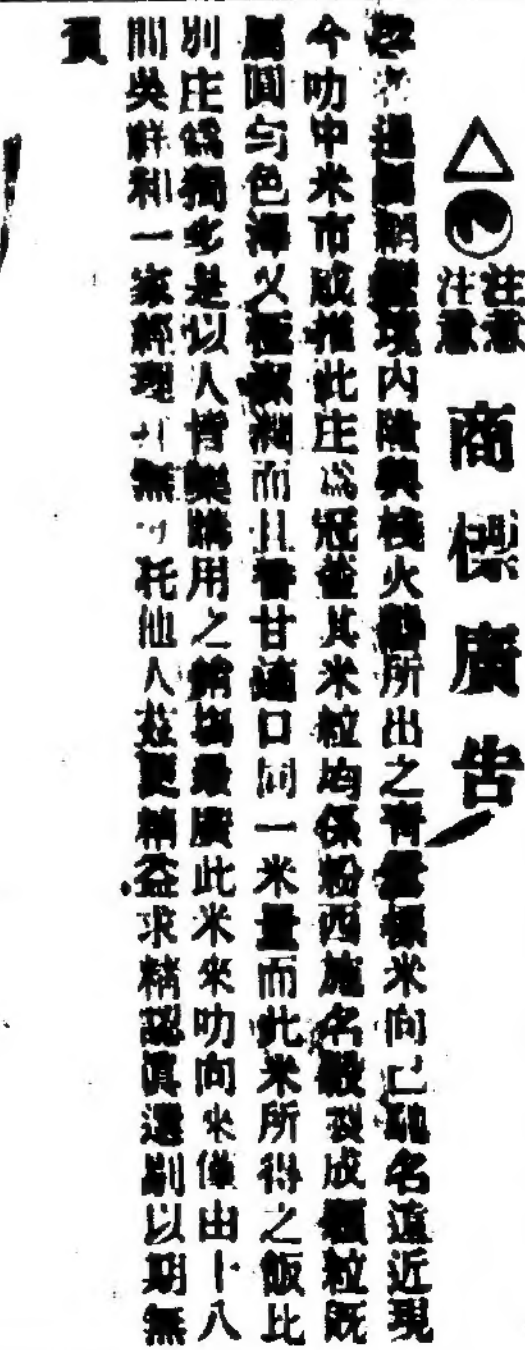 注意
注意
商標廣告
啓者暹國 內隆興棧火礱所出之青雲標米向已馳名遠近現
今叻中米市咸推此庄為冠蓋其米粒均係粉西施名穀製成顆粒既
屬圓勻色澤又極潔潤而且香甘適口同一米量而此米所得之飯比
別庄為獨多是以人皆樂購用之銷場最廣此米來叻向來僅由十八
間吳鮮和一家經理并無 托他人茲更精益求精認真選剔以期無
負